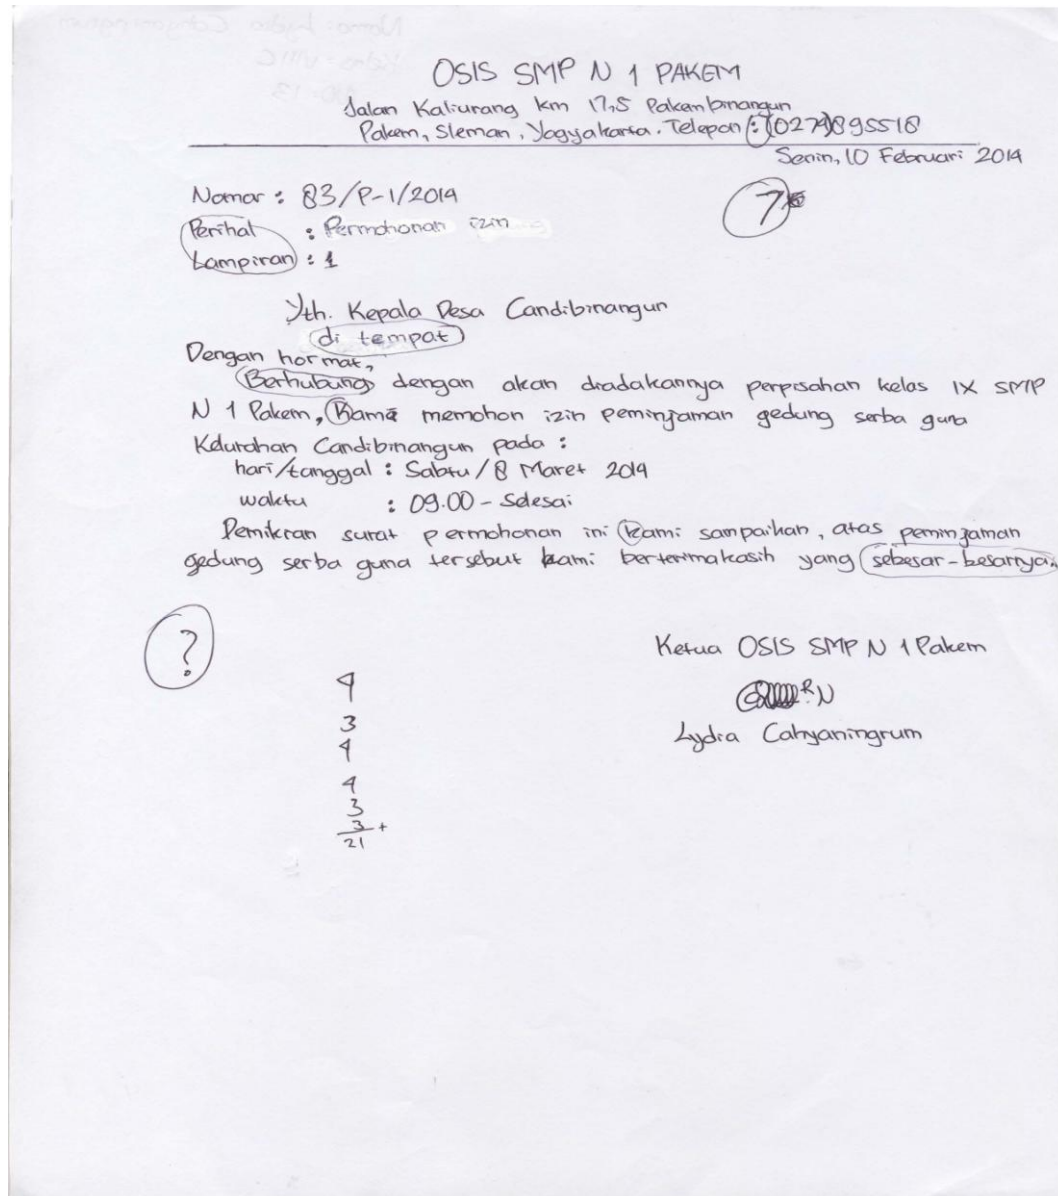 OSIS SMP N 1 PAKEM
Jalan Kaliurang km 17,5 Pakembinangun
Pakem, Sleman, Yogyakarta. Telepon : (0274)895518
Senin, 10 Februari 2014
Nomor : 83/P-1/2014
7
Perihal : Permohonan izin
Lampiran : 1
Yth. Kepala Desa Candibinangun
di tempat
Dengan hormat,
Berhubung dengan akan diadakannya perpisahan kelas IX SMP
N 1 Pakem, Kami memohon izin peminjaman gedung serba guna
Kelurahan Candibinangun pada :
hari/tanggal : Sabtu/8 Maret 2014
waktu : 09.00 - Selesai
Demikian surat permohonan ini kami sampaikan, atas peminjaman
gedung serba guna tersebut kami berterimakasih yang sebesar-besarnya.
?
Ketua OSIS SMP N 1 Pakem
Lydia Cahyaningrum
4
3
4
4
3
3 +
21